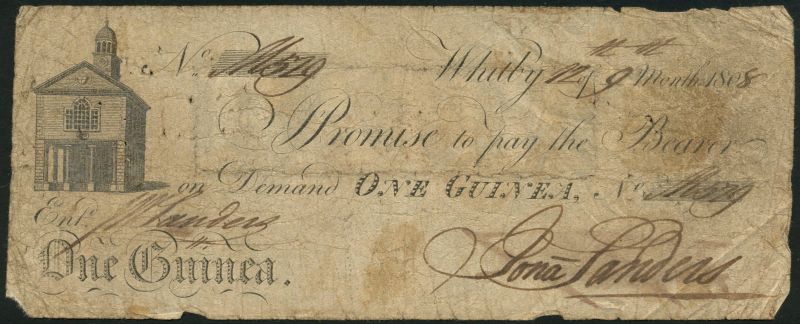 No. M519 Whitby 12th of 9th Month 1808
I Promise to pay the Bearer
on Demand ONE GUINEA, No. M519
Entd. Jn Sanders
One Guinea. Jona Sanders